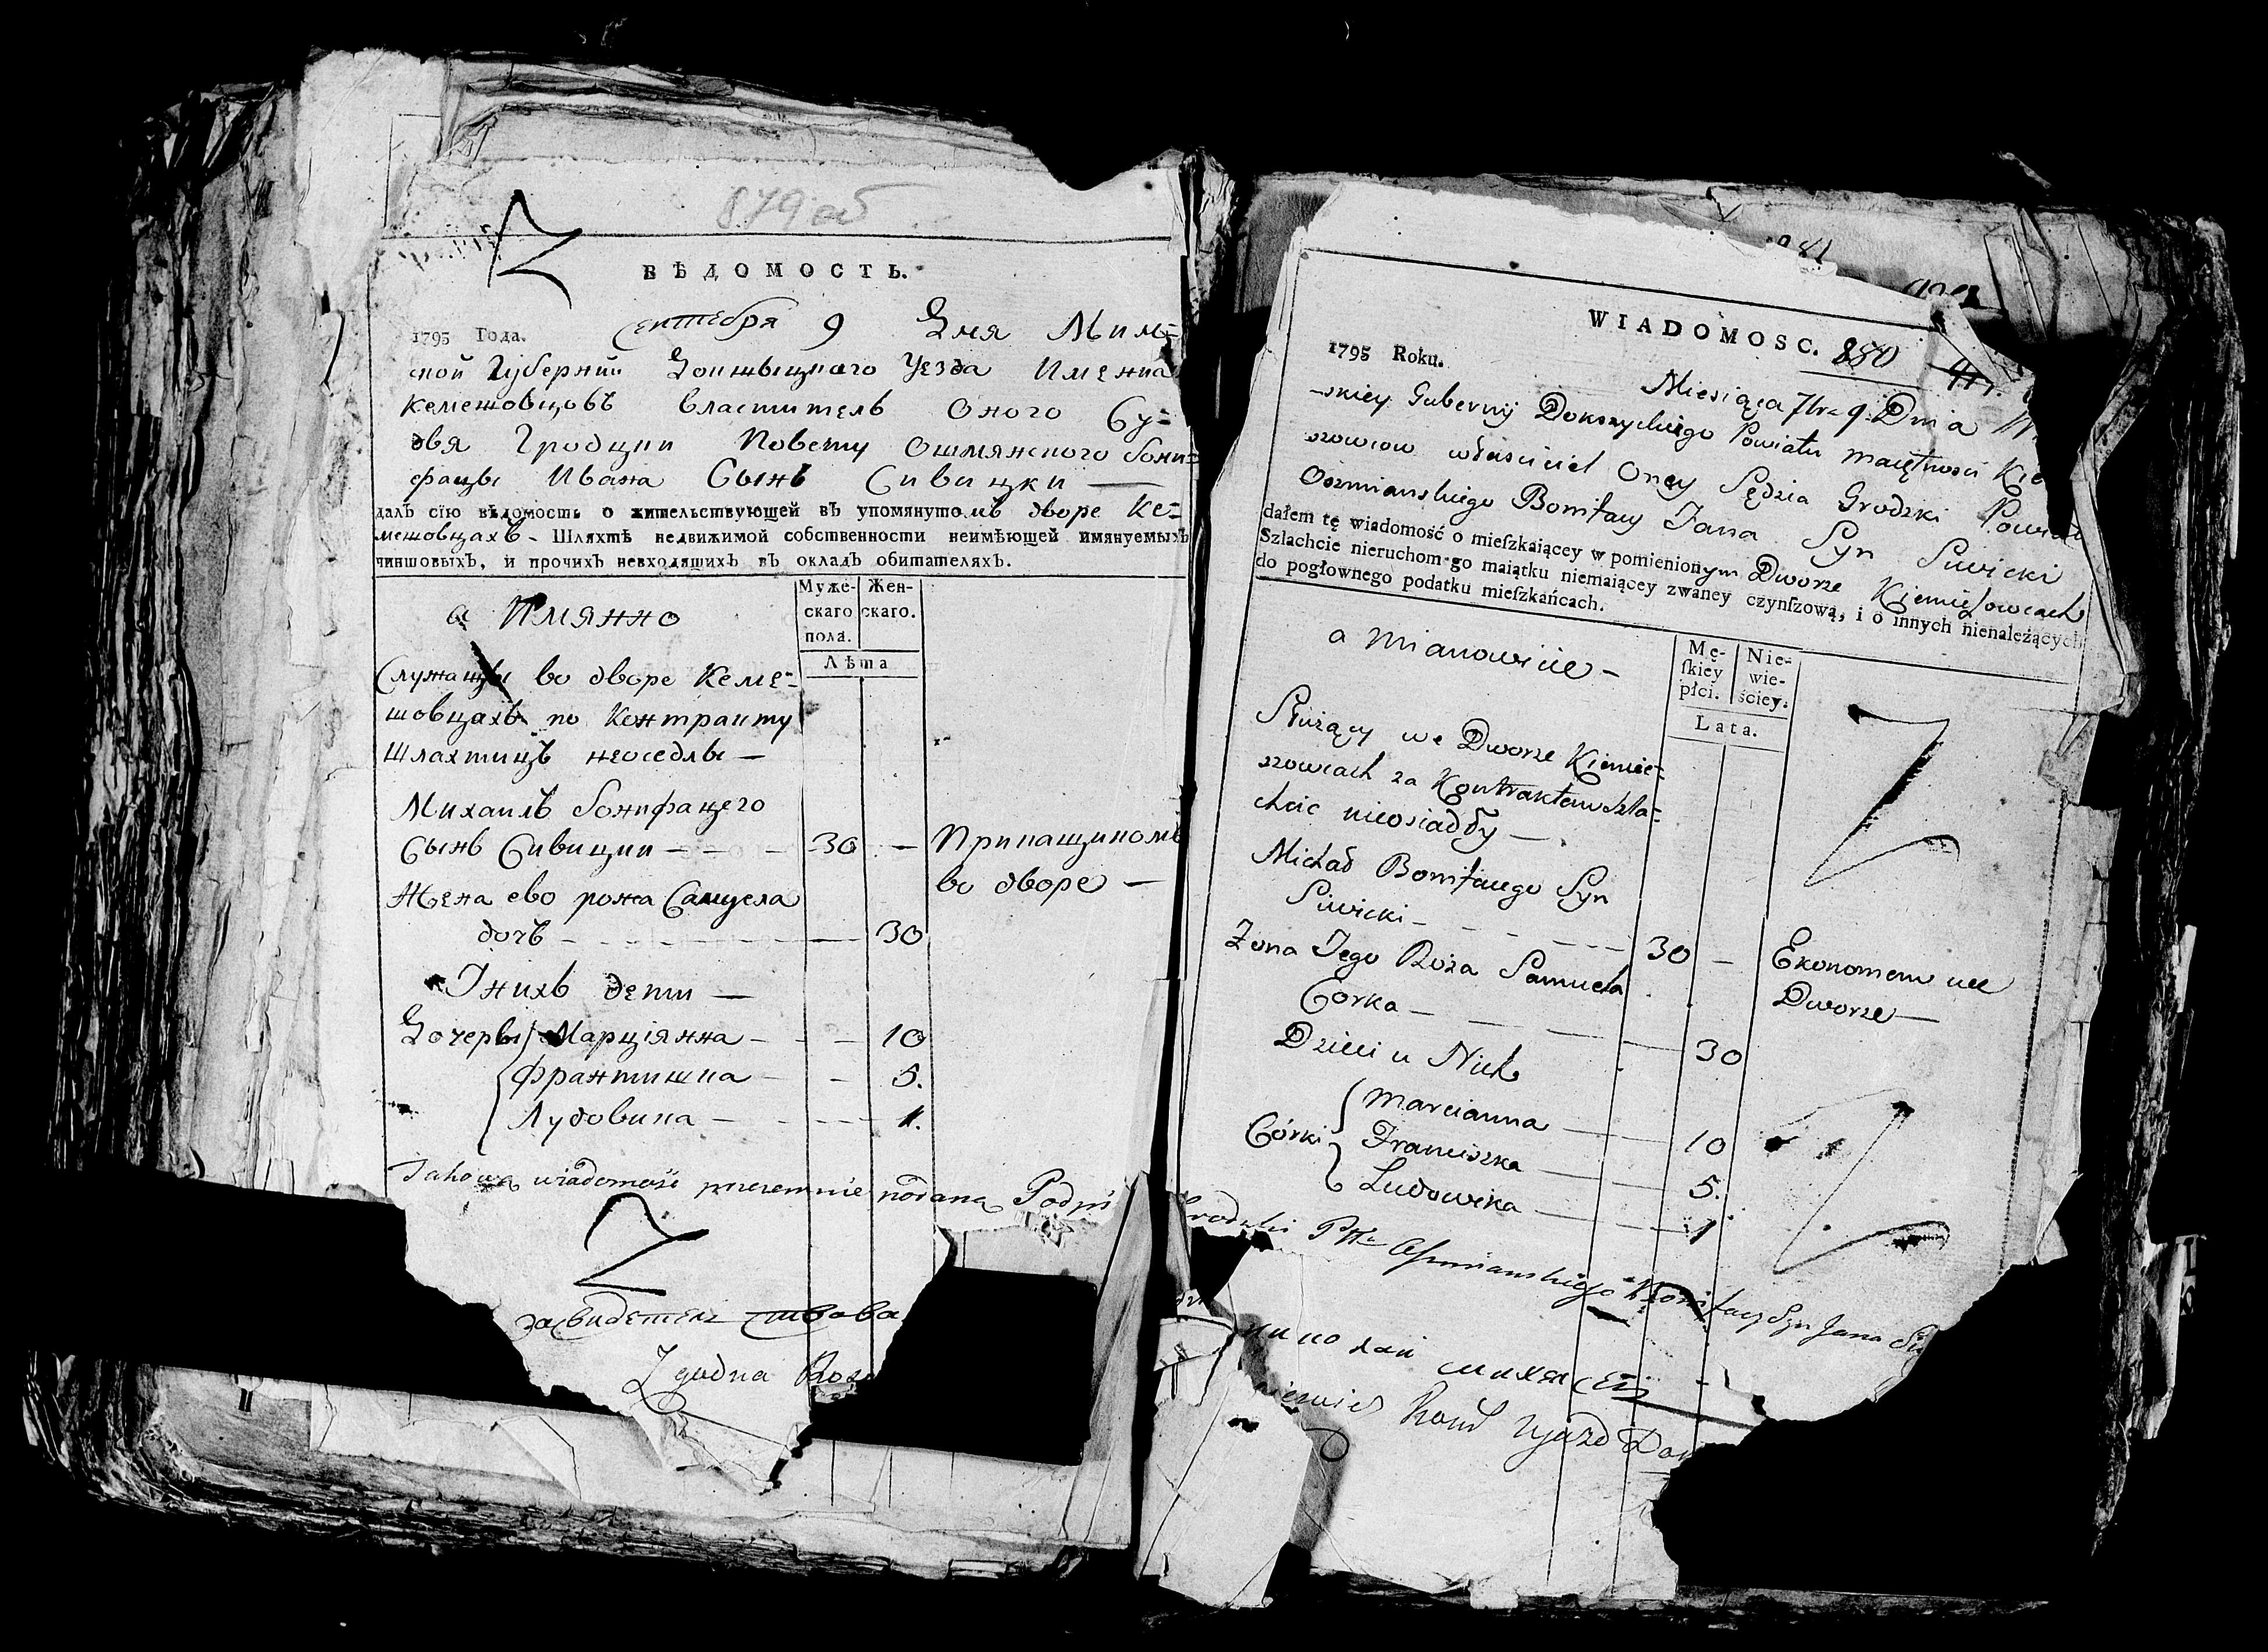 879 об
ВѢДОМОСТЬ.
1795 Года. Сентебря 9 Дня Мин=
ской Губернии Докшыцкаго Уезда Имения
Кемешовцовъ властитель оного Су=
дья Гродцки Повету Ошмянского Бони=
фацы Ивана Сынъ Сивицки —
далъ сїю вѣдомость о жительствующей въ упомянутомъ дворе Ке=
мешовцахъ - Шляхтѣ недвижимой собственности неимѣющей имянуемыхъ
чиншовыхъ, и прочихъ невходящихъ въ окладъ обитателяхъ.
а Имянно
Муже- Жен-
скаго скаго.
пола.
Лѣта
Служащы во дворе Кеме=
шовцахъ по Контракту
Шляхтицъ неоседлы —
Михаилъ Бонифацего
Сынъ Сивицки — 30 — Прикащикомъ
во дворе —
Жена ево рожа Самуела
дочь — 30
У нихъ дети —
Дочеры Марціянна — 10
Франтишка — 5.
Лудовика — 1.
Takową wiadomość przezemnie podaną Podpi
засвидетел ствова
Zgodna
WIADOMOSC. 880
1795 Roku. Miesiąca 7bra 9 Dnia
-skiey Gubernij Dokszyckiego Powiatu maiętnosci Kie
szowcow własciciel Oney Sędzia Grodzki Powiat
Oszmianskiego Bonifacy Jana Syn Siwicki
dałem tę wiadomość o mieſzkaiącey w pomienionym Dworze Kiemieszowcach
Szlachcie nieruchom-go maiątku niemaiącey zwaney czynſzową, i o innych nienależących
do pogłownego podatku mieſzkańcach.
a mianowicie -
Mę- Nie-
ſkiey wie-
płci. ściey.
Lata.
Służący we Dworze Kiemie=
szowcach za Kontraktem Szla=
chcic nieosiadły —
Michał Bonifacego Syn
Siwicki — 30 — Ekonomem we
Dworze —
Zona Jego Roża Samuela
Corka — 30
Dzieci u Nich
Marcianna — 10
Córki Franciszka — 5.
Ludowika — 1
Grodzki Ptu Oszmianskiego Bonifacy Syn Jana